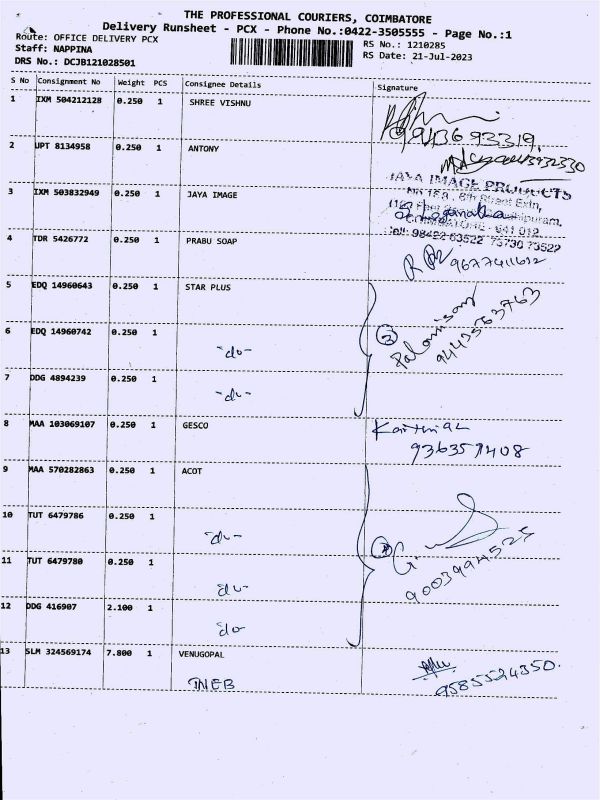 THE PROFESSIONAL COURIERS, COIMBATORE
Delivery Runsheet - PCX - Phone No.:0422-3505555 - Page No.:1
Route: OFFICE DELIVERY PCX
RS No.: 1210285
Staff: NAPPINA
RS Date: 21-Jul-2023
DRS No.: DCJB121028501
S No Consignment No Weight PCS Consignee Details Signature
1 IXM 504212128 0.250 1 SHREE VISHNU
2 UPT 8134958 0.250 1 ANTONY
3 IXM 503832949 0.250 1 JAYA IMAGE
JAYA IMAGE PRODUCTS
COIMBATORE - 641 012
Cell: 98422 63522 73730 73522
4 TDR 5426772 0.250 1 PRABU SOAP
9677411612
5 EDQ 14960643 0.250 1 STAR PLUS
6 EDQ 14960742 0.250 1
-do-
③
Palanisamy
9443563763
7 DDG 4894239 0.250 1
-do-
8 MAA 103069107 0.250 1 GESCO
9 MAA 570282863 0.250 1 ACOT
10 TUT 6479786 0.250 1
-do-
11 TUT 6479780 0.250 1
-do-
12 DDG 416907 2.100 1
-do-
13 SLM 324569174 7.800 1 VENUGOPAL
TNEB
9585524350.